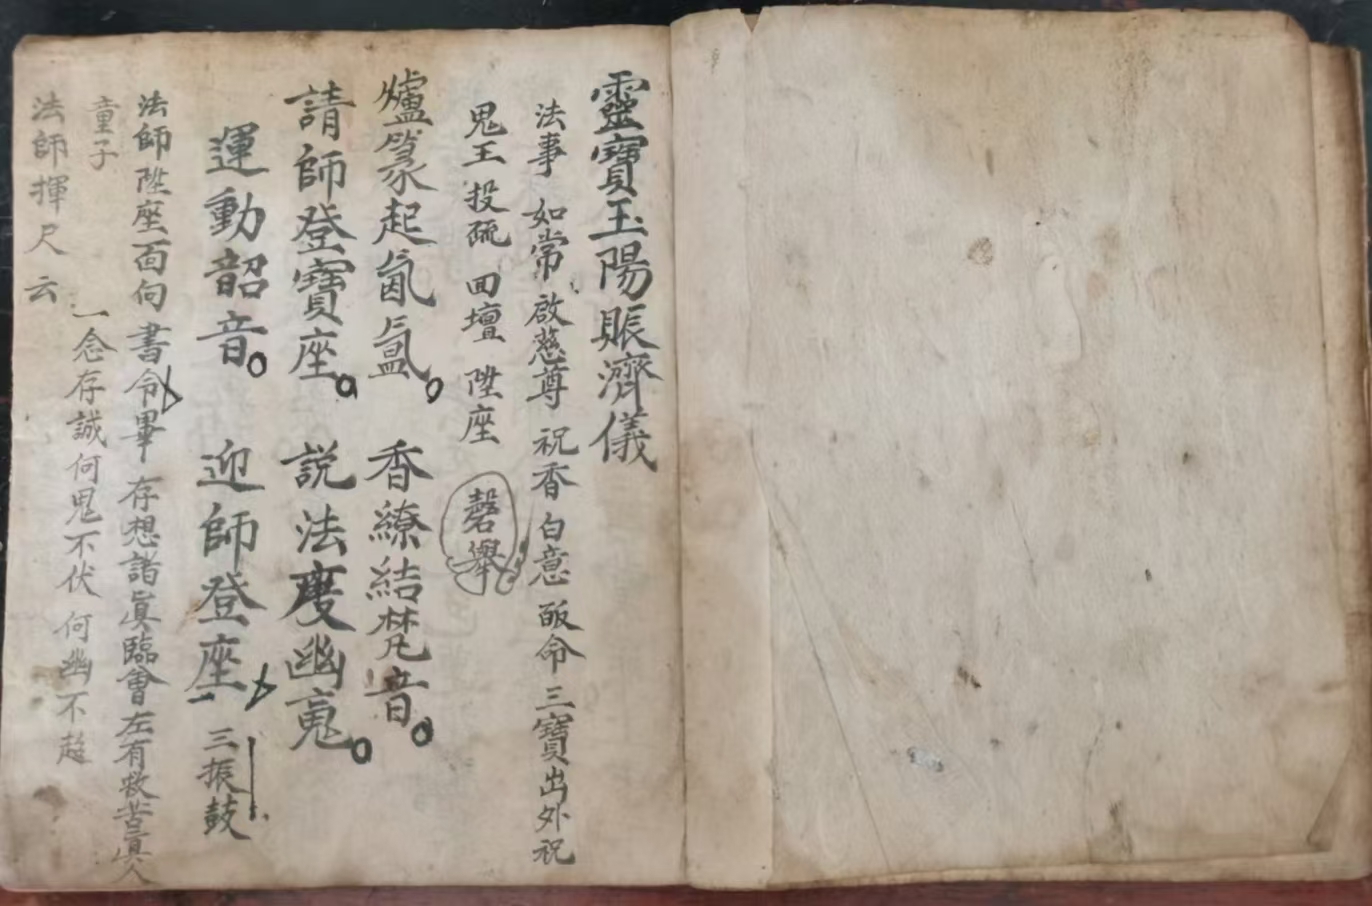 靈寶玉陽賑濟儀
法事 如常 啟慈尊 祝香 白意 皈命 三寶出外祝
鬼王 投疏 回壇 陞座 磬舉
爐篆起氤氳。 香繚結梵音。
請師登寶座。 説法度幽䰟。
運動韶音。 迎師登座 三振鼓
法師陞座面向 書令畢 存想諸眞臨會左右救苦眞人
童子 一念存誠何鬼不伏 何幽不超
法師揮尺云